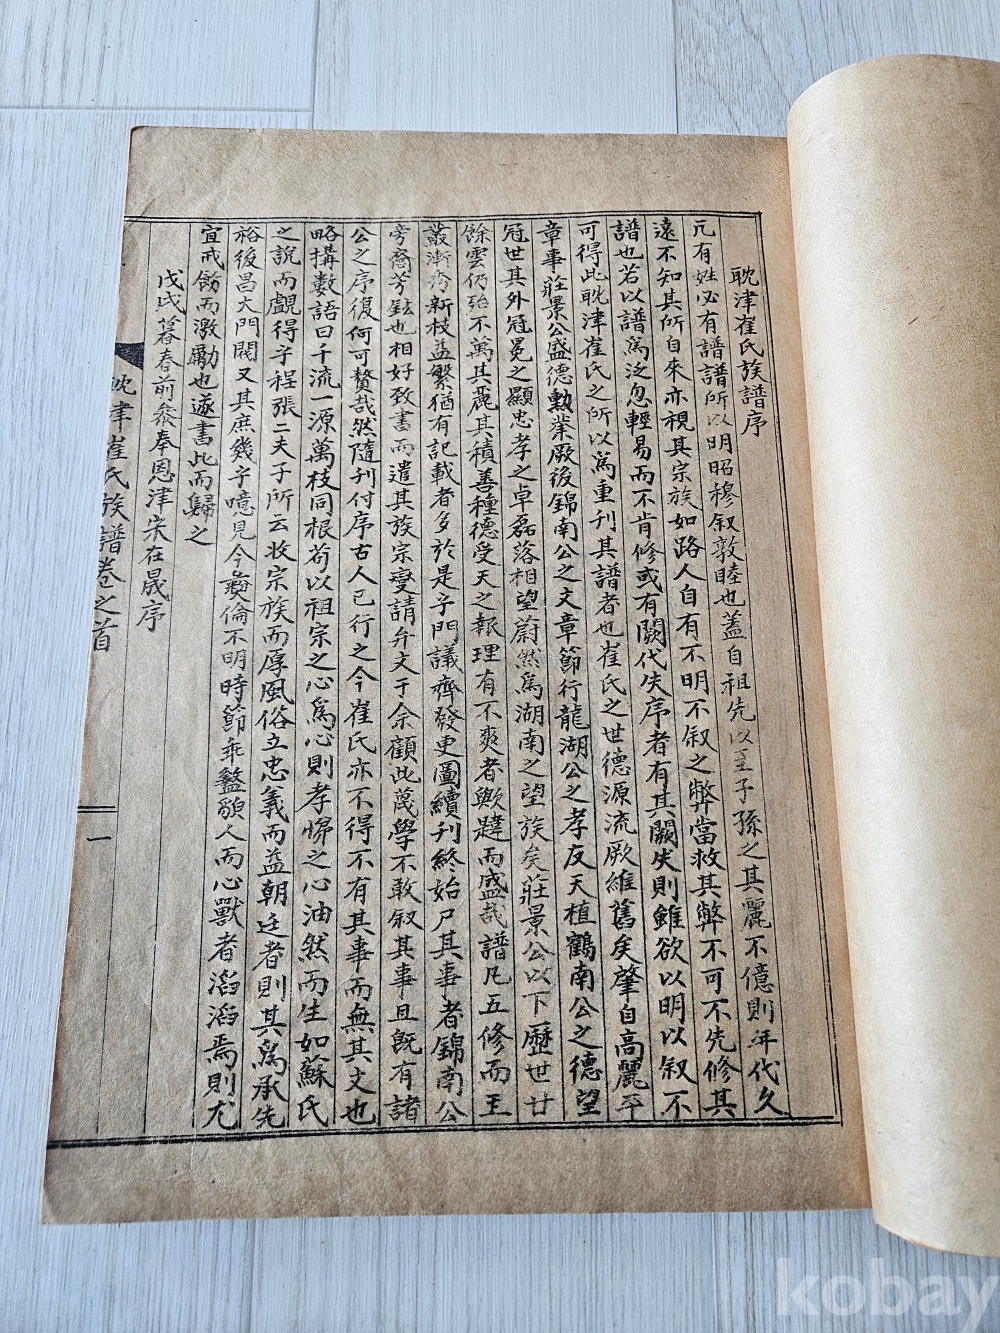 耽津崔氏族譜序
元有姓必有譜譜所以明昭穆叙敦睦也蓋自祖先以至子孫之其麗不億則年代久
遠不知其所自來亦視其宗族如路人自有不明不叙之弊當救其弊不可不先修其
譜也若以譜爲泛忽輕易而不肯修或有闕代失序者有其闕失則雖欲以明以叙不
可得此耽津崔氏之所以爲重刊其譜者也崔氏之世德源流厥維舊矣肇自高麗平
章事莊景公盛德勳業厥後錦南公之文章節行龍湖公之孝友天植鶴南公之德望
冠世其外冠冕之顯忠孝之卓磊落相望蔚然爲湖南之望族矣莊景公以下歷世廿
餘雲仍殆不萬其麗其積善種德受天之報理有不爽者歟韙而盛哉譜凡五修而王
叢漸秀新枝益繁猶有記載者多於是乎門議齊發更圖續刊終始尸其事者錦南公
旁裔芳鉉也相好致書而遣其族宗燮請弁文于余顧此蔑學不敢叙其事且旣有諸
公之序復何可贅哉然隨刊付序古人已行之今崔氏亦不得不有其事而無其文也
略搆數語曰千流一源萬枝同根苟以祖宗之心爲心則孝悌之心油然而生如蘇氏
之說而覰得子程張二夫子所云收宗族而厚風俗立忠義而益朝廷者則其爲承先
裕後昌大門閥又其庶幾乎噫見今彝倫不明時節乖盭貌人而心獸者滔滔焉則尤
宜戒飭而激勵也遂書此而歸之
戊戌暮春前參奉恩津宋在晟序
耽津崔氏族譜卷之首
一
kobay